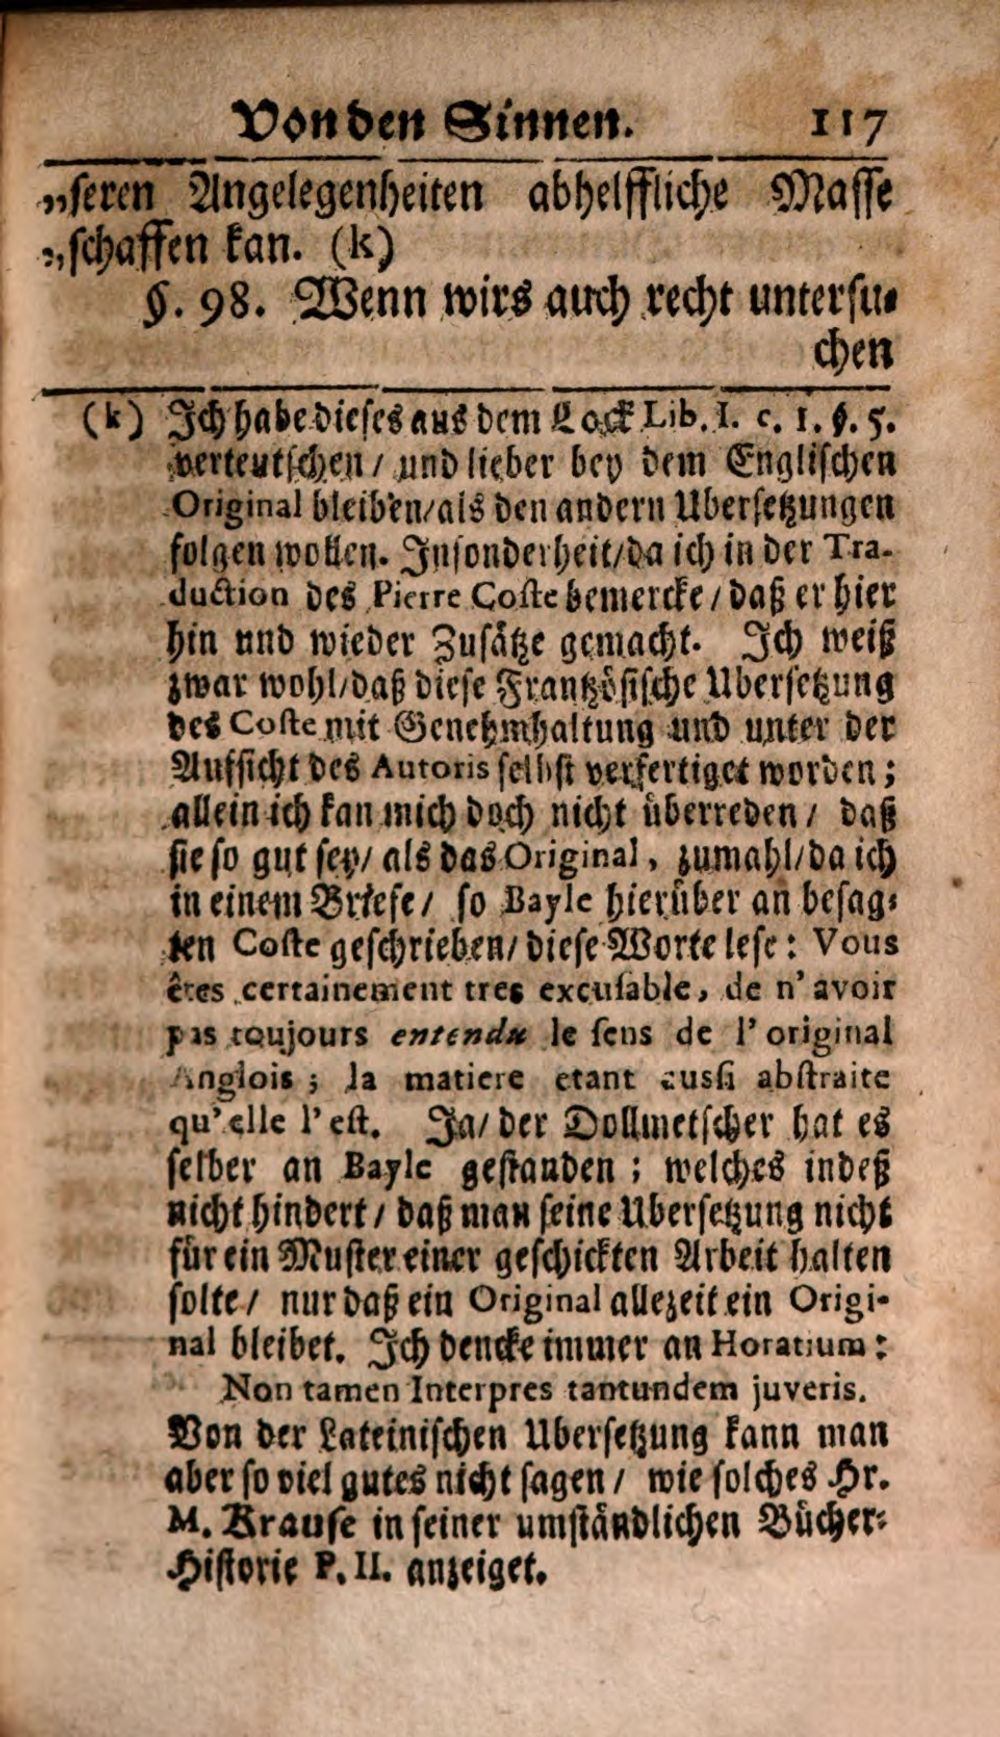 Von den Sinnen. 117
„seren Angelegenheiten abhelffliche Masse
„schaffen kan. (k)
§. 98. Wenn wirs auch recht untersu-
chen
(k) Ich habe dieses aus dem Lock Lib. I. c. 1. §. 5.
verteutschen / und lieber bey dem Englischen
Original bleiben/als den andern Ubersetzungen
folgen wollen. Insonderheit/da ich in der Tra-
duction des Pierre Coste bemercke / daß er hier
hin und wieder Zusätze gemacht. Ich weiß
zwar wohl/daß diese Frantzösische Ubersetzung
des Coste mit Genehmhaltung und unter der
Aufsicht des Autoris selbst verfertiget worden;
allein ich kan mich doch nicht überreden / daß
sie so gut sey/ als das Original, zumahl/da ich
in einem Briefe / so Bayle hierüber an besag-
ten Coste geschrieben/ diese Worte lese: Vous
êtes certainement tres excusable, de n'avoir
pas toujours entendu le sens de l'original
Anglois; la matiere etant aussi abstraite
qu'elle l'est. Ja/ der Dollmetscher hat es
selber an Bayle gestanden; welches indeß
nicht hindert / daß man seine Ubersetzung nicht
für ein Muster einer geschickten Arbeit halten
solte / nur daß ein Original allezeit ein Origi-
nal bleibet. Ich dencke immer an Horatium:
Non tamen Interpres tantundem juveris.
Von der Lateinischen Ubersetzung kann man
aber so viel gutes nicht sagen / wie solches Hr.
M. Krause in seiner umständlichen Bücher-
Historie P. II. anzeiget.